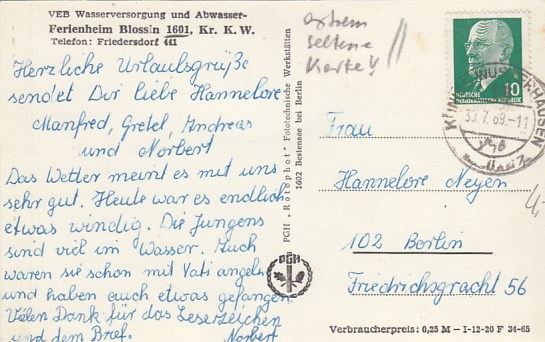 VEB Wasserversorgung und Abwasser-
Ferienheim Blossin 1601, Kr. K. W.
Telefon: Friedersdorf 441
Herzliche Urlaubsgrüße
sendet Dir liebe Hannelore
Manfred, Gretel, Andreas
und Norbert
Das Wetter meint es mit uns
sehr gut. Heute war es endlich
etwas windig. Die Jungens
sind viel im Wasser. Auch
waren sie schon mit Vati angeln
und haben auch etwas gefangen.
Vielen Dank für das Lesezeichen
und dem Brief. Norbert
PGH „Rotophot" Fototechnische Werkstätten
1602 Bestensee bei Berlin
PGH
extrem
seltene
Karte!!
10
DEUTSCHE
DEMOKRATISCHE REPUBLIK
KÖNIGS WUSTERHAUSEN
30.7.69.-11
Frau
Hannelore Neyen
102 Berlin
Friedrichsgracht 56
4,-
Verbraucherpreis: 0,25 M – I-12-20 F 34-65